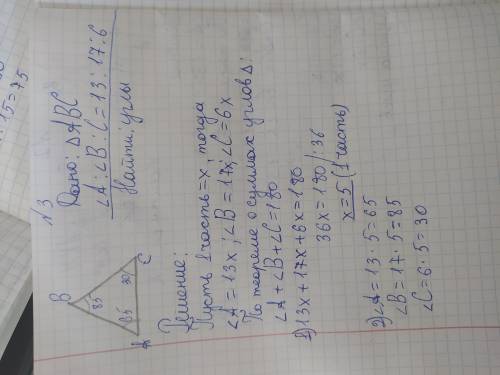 : 15 = 75
N3
Дано: ΔABC
∠A : ∠B : ∠C = 13 : 17 : 6
Найти: углы
B
85
65
30
A
C
Решение:
Пусть 1 часть = x, тогда
∠A = 13x; ∠B = 17x; ∠C = 6x
По теореме о суммах углов Δ:
∠A + ∠B + ∠C = 180
1) 13x + 17x + 6x = 180
36x = 180 / : 36
x = 5 (1 часть)
2) ∠A = 13 · 5 = 65
∠B = 17 · 5 = 85
∠C = 6 · 5 = 30